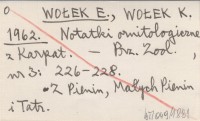 O WOŁEK E., WOŁEK K.
1962. Notatki ornitologiczne
z Karpat. – Prz. Zool.,
nr 3: 226-228.
• Z Pienin, Małych Pienin
i Tatr.